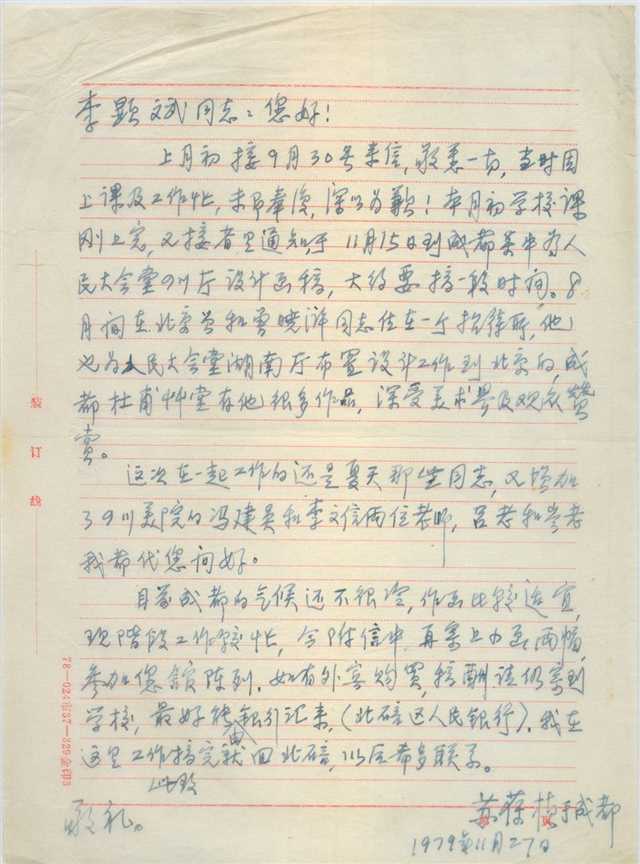 李显斌同志：您好！
上月初接9月30号来信，敬悉一切，当时因
上课及工作忙，未即奉复，深以为歉！本月初学校课
刚上完，又接省里通知，于11月15日到成都集中为人
民大会堂四川厅设计画稿，大约要搞一段时间。8
月间在北京曾和曹晓浒同志住在一个招待所，他
也为人民大会堂湖南厅布置设计工作到北京的，成
都杜甫艸堂有他很多作品，深受美术界及观众赞
赏。
这次在一起工作的还是夏天那些同志，又增加
了四川美院的冯建吴和李文信两位老师，吕老和岑老
我都代您问好。
目前成都的气候还不很冷，作画比较适宜，
现阶段工作较忙，今附信中再寄上小画两幅，
参加您馆陈列，如有外宾购买，稿酬请仍寄到
学校，最好能由银行汇来，（北碚区人民银行）。我在
这里工作搞完就回北碚，以后希多联系。
此致
敬礼。
苏葆桢于成都
1979年11月27日
装订线
78—024